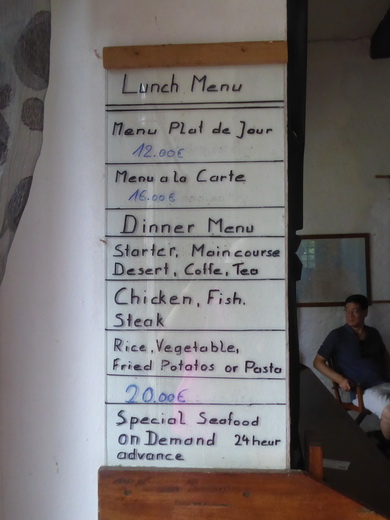 Lunch Menu
Menu Plat de Jour
12.00€
Menu a la Carte
16.00€
Dinner Menu
Starter, Main course
Desert, Coffe, Tea
Chicken, Fish.
Steak
Rice, Vegetable,
Fried Potatos or Pasta
20.00€
Special Seafood
on Demand 24 heur
advance